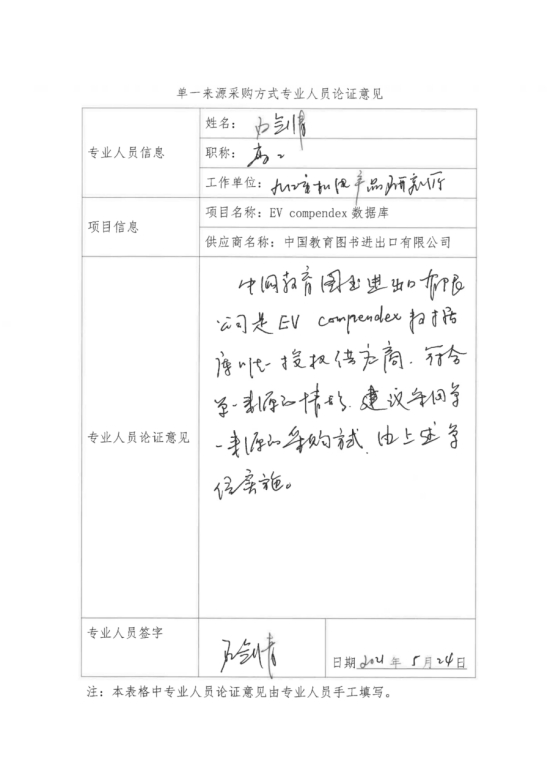 单一来源采购方式专业人员论证意见
专业人员信息
姓名：
职称：高工
工作单位：产品研究所
项目信息
项目名称：EV compendex 数据库
供应商名称：中国教育图书进出口有限公司
专业人员论证意见
中国教育图书进出口有限
公司是 EV compendex 数据
库唯一授权供应商，符合
单一来源的情形，建议采用单
一来源的采购方式，由上述单
位实施。
专业人员签字
日期 2021 年 5 月 24 日
注：本表格中专业人员论证意见由专业人员手工填写。